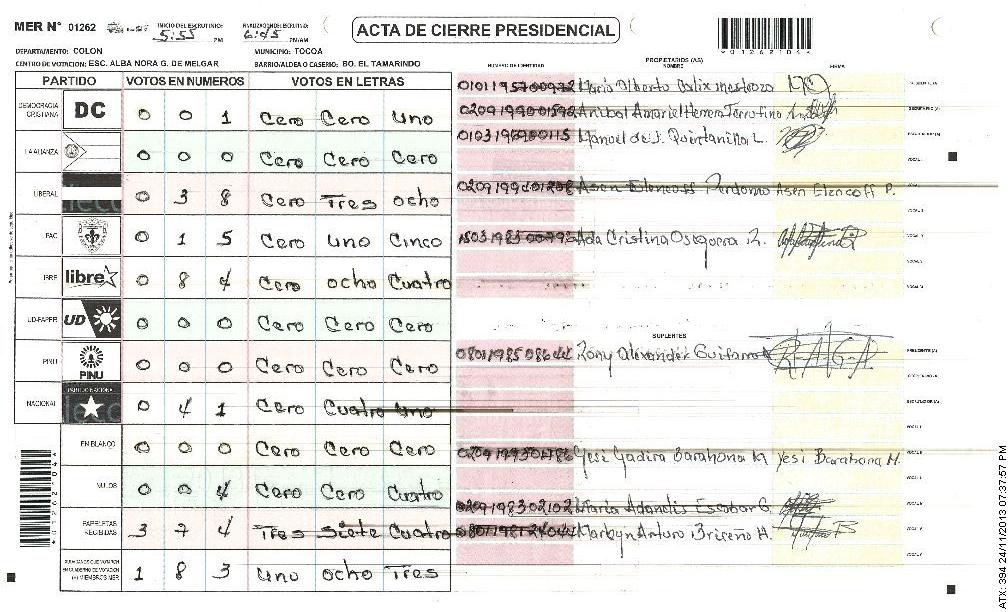 MER N° 01262 INICIO DEL ESCRUTINIO: 5:55 PM FINALIZACION DEL ESCRUTINIO: 6:45 PM/AM
ACTA DE CIERRE PRESIDENCIAL
DEPARTAMENTO: COLON MUNICIPIO: TOCOA
CENTRO DE VOTACION: ESC. ALBA NORA G. DE MELGAR BARRIO/ALDEA O CASERIO: BO. EL TAMARINDO
PARTIDO VOTOS EN NUMEROS VOTOS EN LETRAS
DEMOCRACIA CRISTIANA DC 0 0 1 Cero Cero Uno
LA ALIANZA 0 0 0 Cero Cero Cero
LIBERAL 0 3 8 Cero Tres ocho
PAC 0 1 5 Cero uno Cinco
LIBRE libre 0 8 4 Cero ocho Cuatro
UD-FAPER UD 0 0 0 Cero Cero Cero
PINU PINU 0 0 0 Cero Cero Cero
NACIONAL PARTIDO NACIONAL 0 4 1 Cero Cuatro uno
EN BLANCO 0 0 0 Cero Cero Cero
NULOS 0 0 4 Cero Cero Cuatro
PAPELETAS RECIBIDAS 3 7 4 Tres Siete Cuatro
CIUDADANOS QUE VOTARON EN CUADERNO DE VOTACION (+) MIEMBROS MER 1 8 3 uno ocho Tres
PROPIETARIOS (AS)
NUMERO DE IDENTIDAD NOMBRE FIRMA
Mario Alberto
Anibal Amariel Herrera
Manuel de J. Quintanilla L.
Asen Elencoff Perdomo Asen Elencoff P.
Ada Cristina Oseguera Z.
SUPLENTES
0801198508644 Rony Alexander Guifarro
Yesi Yadira Barahona M Yesi Barahona M.
0209198302102 Maria Adanelis Escobar G.
Marbyn Arturo Briceño H.
*012621044*
ATX: 394 24/11/2013 07:37:57 PM